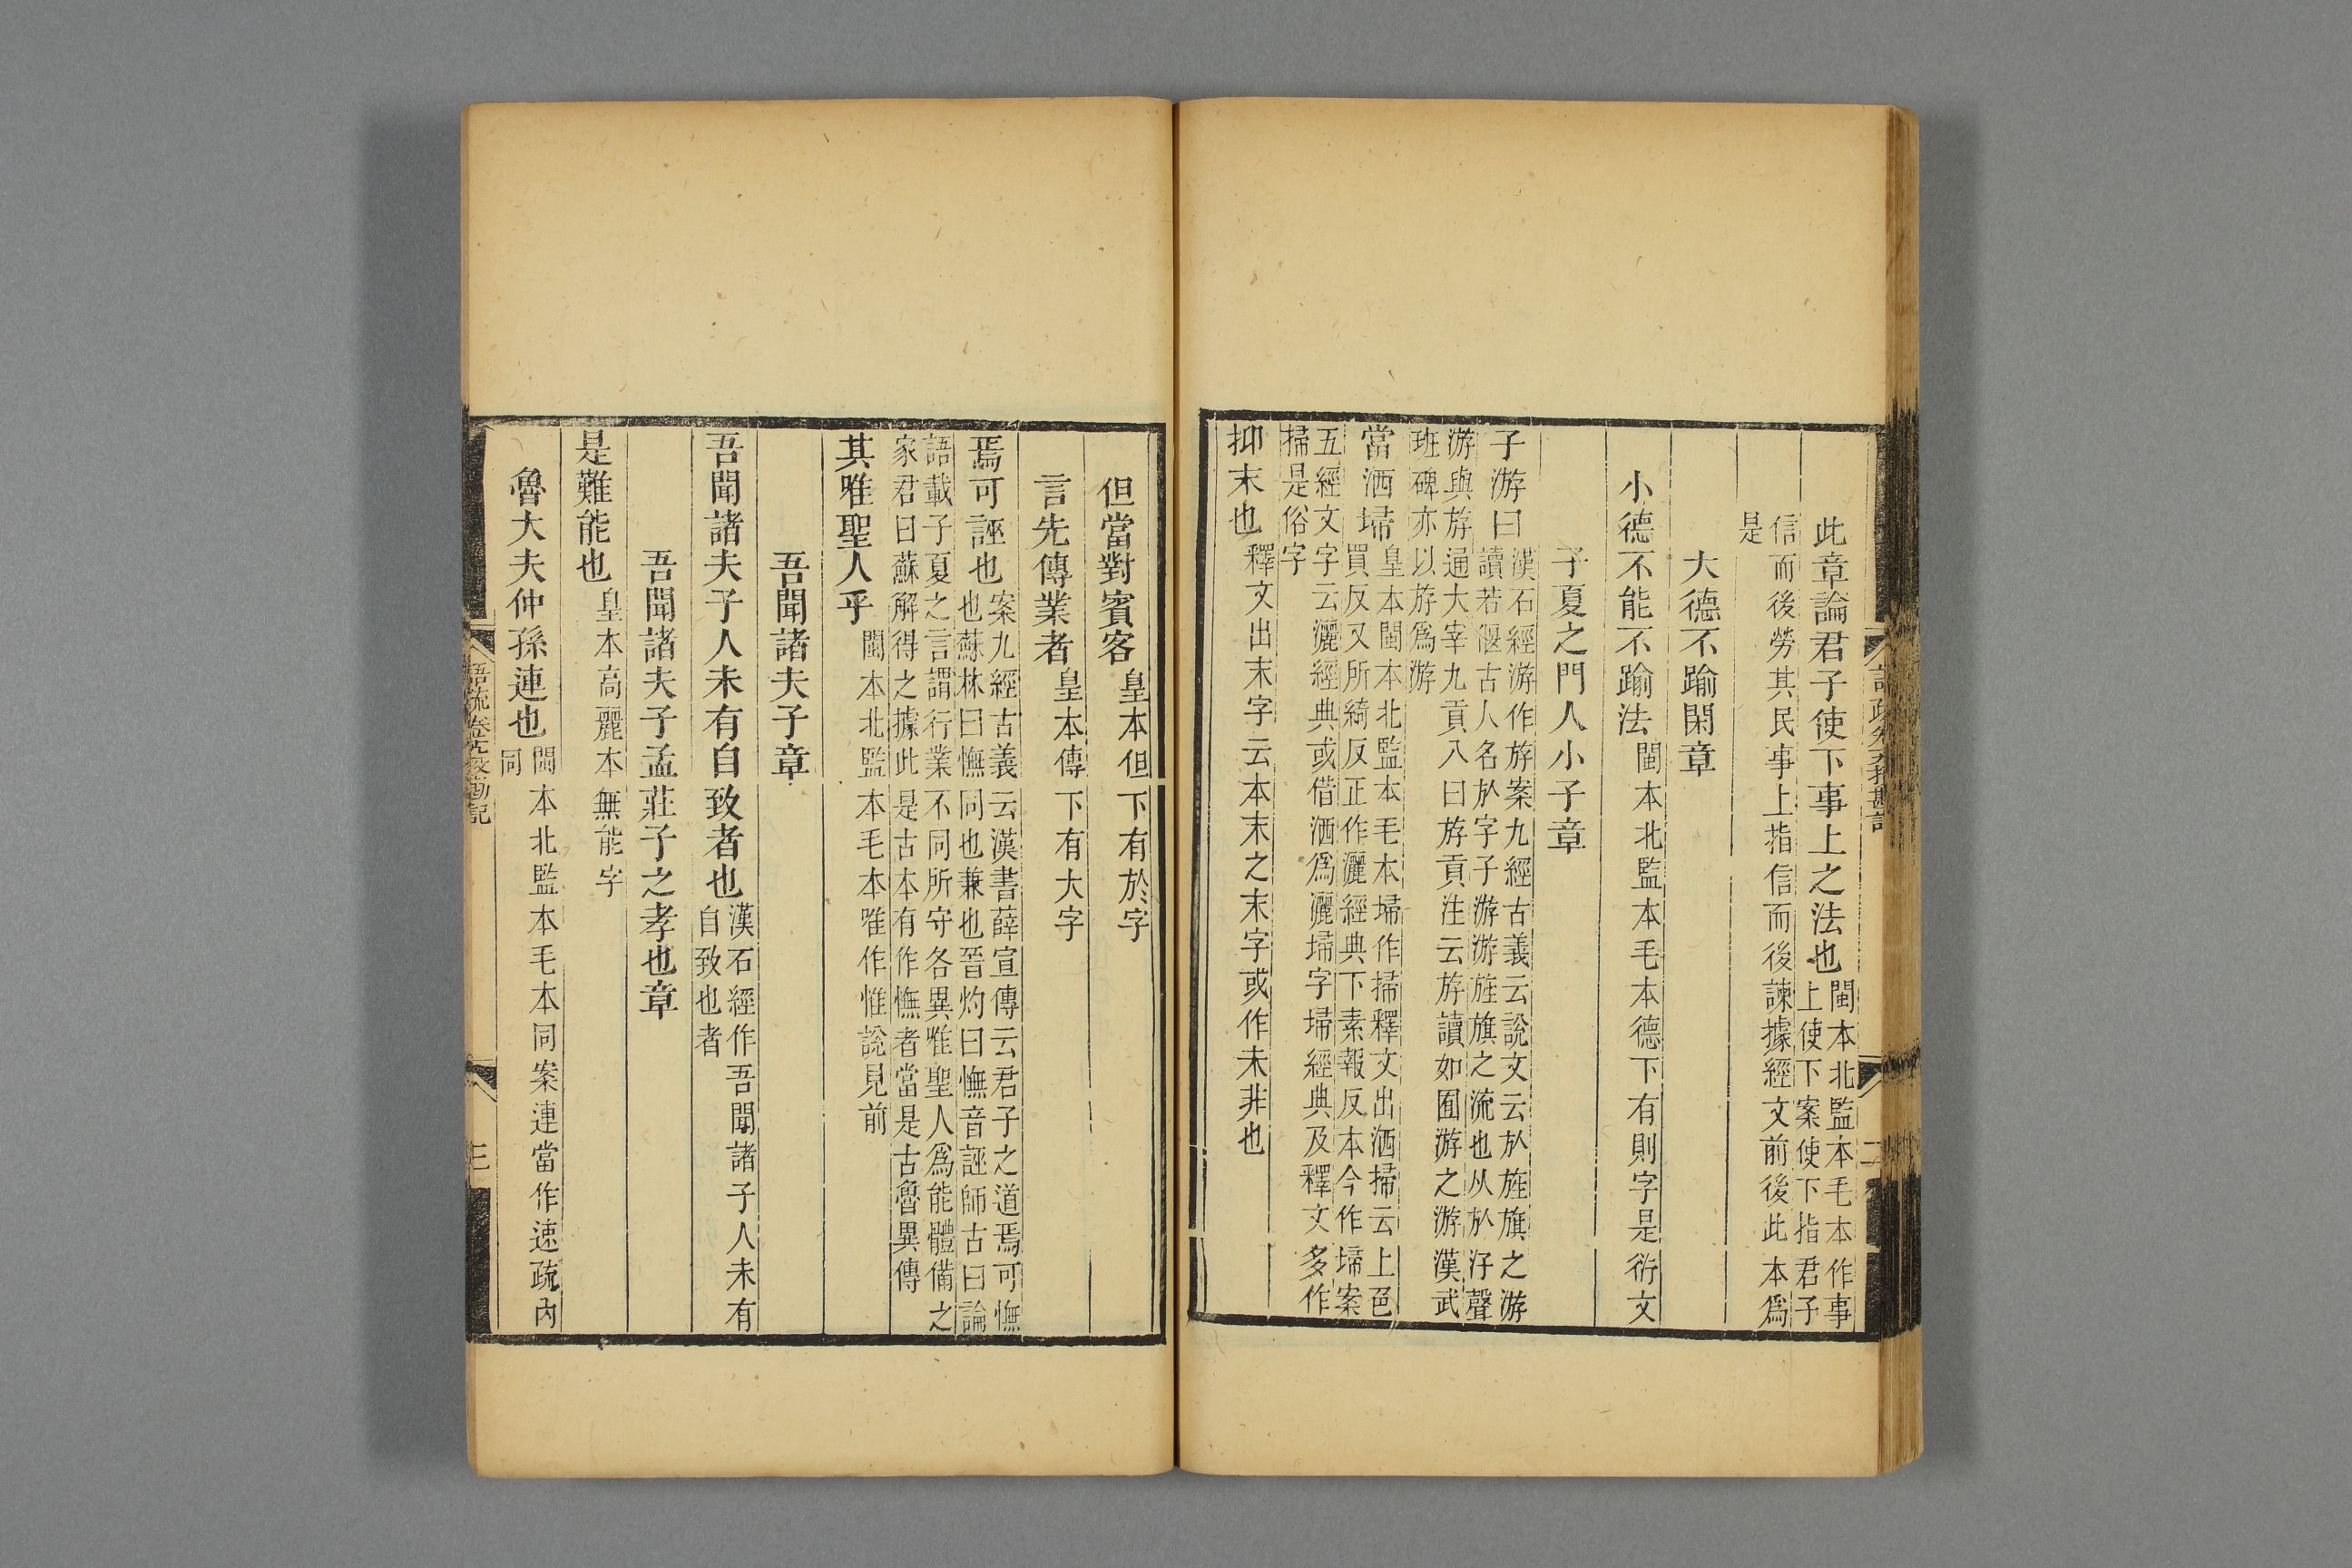 此章論君子使下事上之法也閩本北監本毛本作事上使下案使下指君子
信而後勞其民事上指信而後諫據經文前後此本爲是
大德不踰閑章
小德不能不踰法閩本北監本毛本德下有則字是衍文
子夏之門人小子章
子游曰漢石經游作斿案九經古義云說文云㫃旌旗之游讀若偃古人名㫃字子游游旌旗之流也从㫃汓聲
游與斿通大宰九貢八曰斿貢注云斿讀如囿游之游漢武班碑亦以斿爲游
當洒埽皇本閩本北監本毛本埽作掃釋文出洒掃云上色買反又所綺反正作灑經典下素報反本今作埽案
五經文字云灑經典或借洒爲灑埽字埽經典及釋文多作掃是俗字
抑末也釋文出末字云本末之末字或作未非也
但當對賓客皇本但下有於字
言先傳業者皇本傳下有大字
焉可誣也案九經古義云漢書薛宣傳云君子之道焉可憮也蘇林曰憮同也兼也晉灼曰憮音誣師古曰論
語載子夏之言謂行業不同所守各異唯聖人爲能體備之家君曰蘇解得之據此是古本有作憮者當是古魯異傳
其唯聖人乎閩本北監本毛本唯作惟說見前
吾聞諸夫子章
吾聞諸夫子人未有自致者也漢石經作吾聞諸子人未有自致也者
吾聞諸夫子孟莊子之孝也章
是難能也皇本高麗本無能字
魯大夫仲孫連也閩本北監本毛本同案連當作速疏內同
語疏卷十九校勘記
三